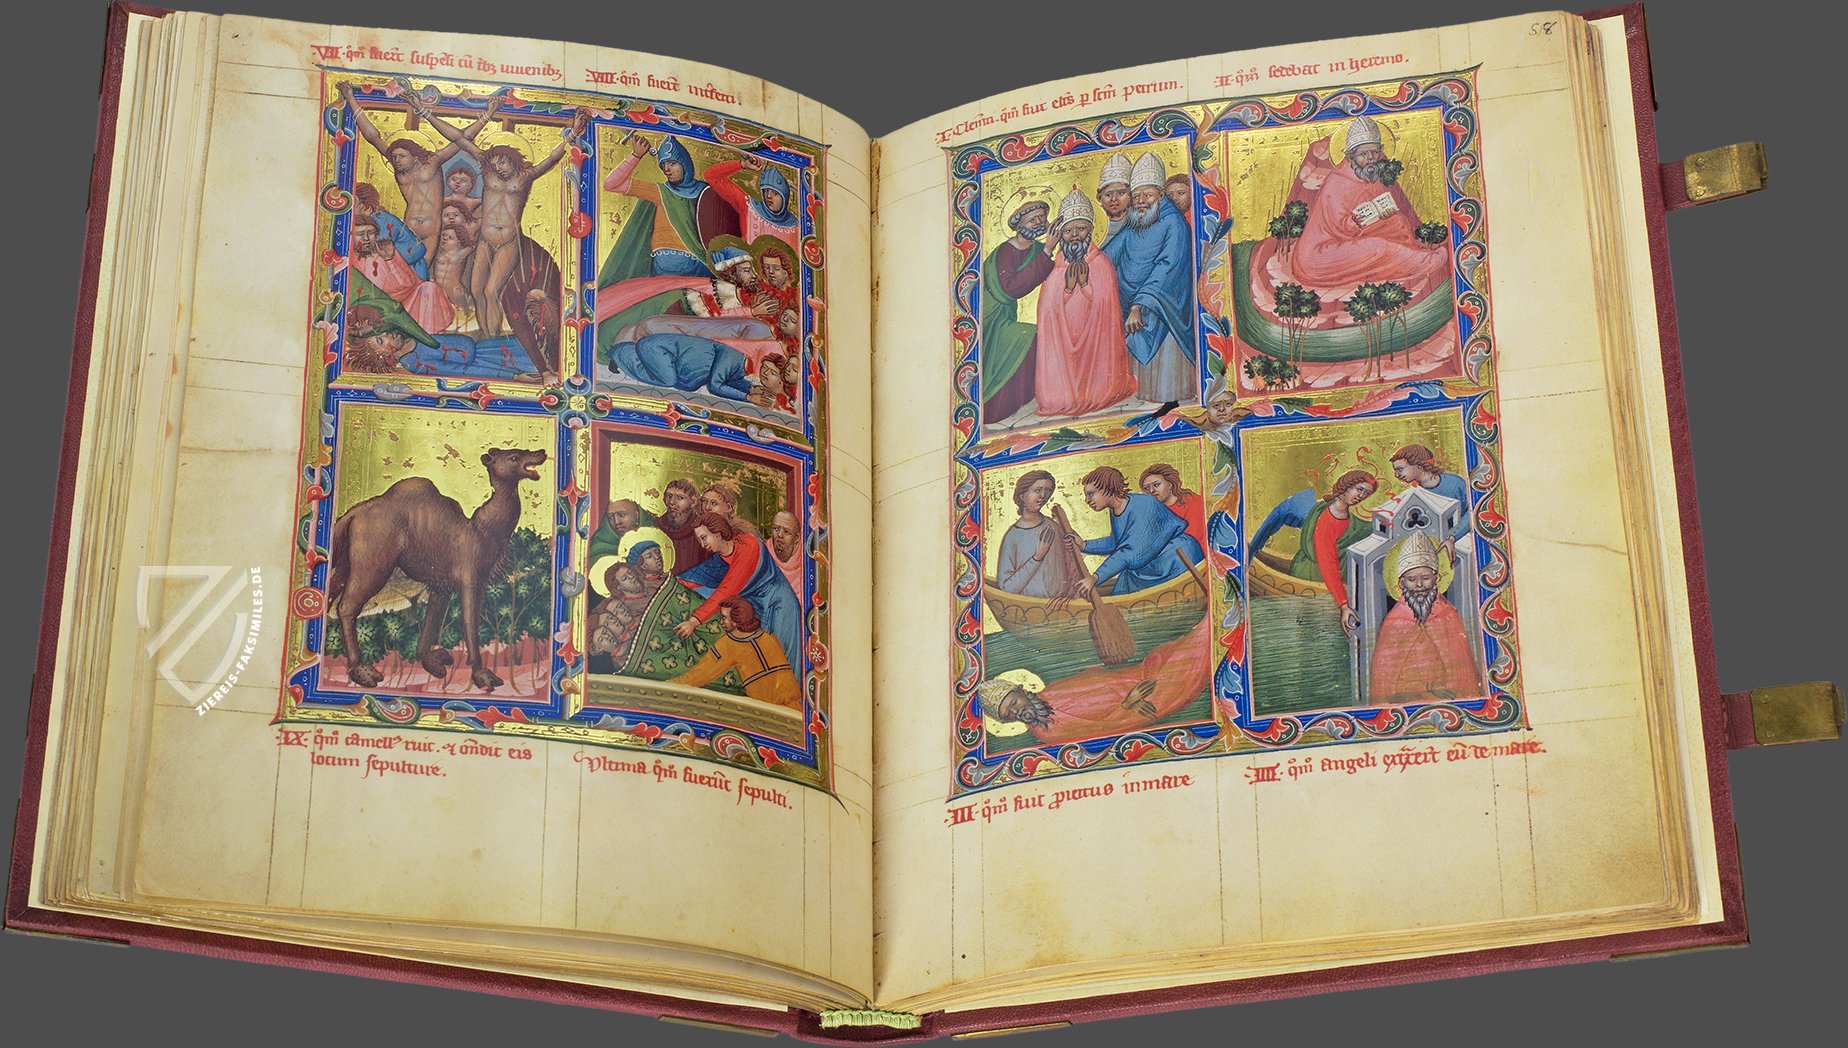 ·VII· qm̄ fuerūt suspēsi cū tb3 iuuenib3
·VIII· qm̄ fuerūt interfecti.
·IX· qm̄ camell9 ruit. ⁊ ondit eis
locum sepulture.
Vltima qm̄ fuerūt sepulti.
58
·I· Clemēti. qm̄ fuit elc̄s p scm̄ petrum.
·II· qm̄ sedebat in heremo.
·III· qm̄ fuit proiectus in mare
·IIII· qm̄ angeli eum de mare.
ZIEREIS-FAKSIMILES.DE